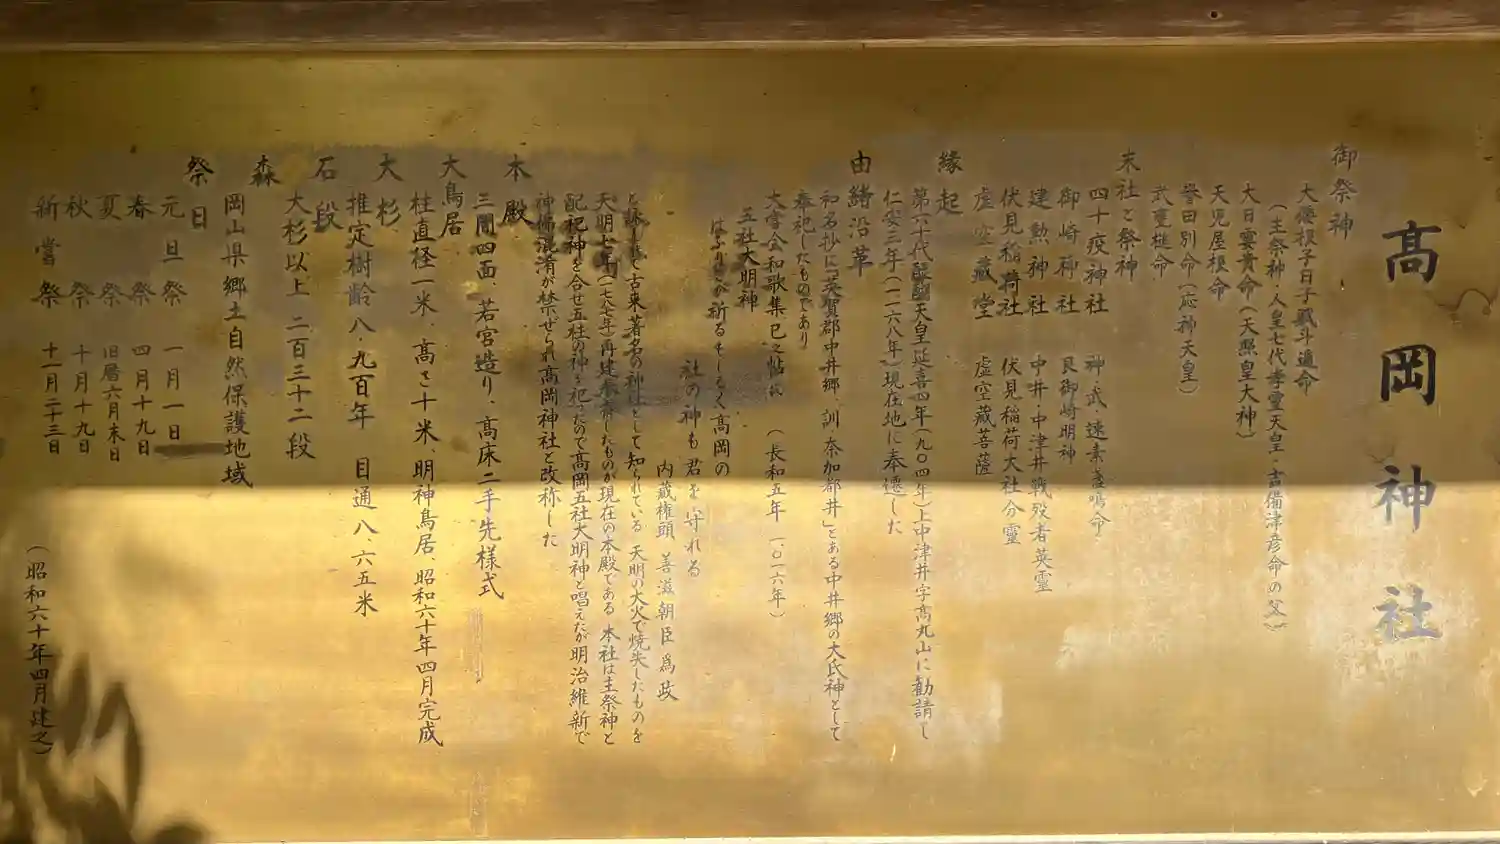 高岡神社
御祭神
大倭根子日子賦斗邇命
(主祭神・人皇七代孝霊天皇・吉備津彦命の父)
大日霎貴命(天照皇大神)
天児屋根命
誉田別命(応神天皇)
式重槌命
末社と祭神
四十疫神社 神・武・速素盞嗚命
御崎神社 艮御崎明神
建勲神社 中井・中津井戦歿者英霊
伏見稲荷社 伏見稲荷大社分霊
虚空蔵堂 虚空蔵菩薩
縁起
第六十代醍醐天皇延喜四年(九〇四年)上中津井字高丸山に勧請し
仁安三年(一一六八年)現在地に奉遷した
由緒沿革
和名抄に「英賀郡中井郷、訓奈加都井」とある中井郷の大氏神として
奉祀したものであり
大嘗会和歌集巳之帖に (長和五年 一、〇一六年)
五社大明神
はふりこが祈るもしるく高岡の
社の神も君を守れる
内蔵権頭 善滋朝臣為政
と詠まれて古来著名の神社として知られている 天明の大火で焼失したものを
天明七年(一七七年)再建奉斎したものが現在の本殿である 本社は主祭神と
配祀神を合せ五柱の神を祀ったので高岡五社大明神と唱えたが明治維新で
神佛混淆が禁ぜられ高岡神社と改称した
本殿
三間四面、若宮造り、高床二手先様式
大鳥居
柱直径一米、高さ十米、明神鳥居、昭和六十年四月完成
大杉
推定樹齢八、九百年 目通八、六五米
石段
大杉以上 二百三十二段
森
岡山県郷土自然保護地域
祭日
元旦祭 一月一日
春祭 四月十九日
夏祭 旧暦六月末日
秋祭 十月十九日
新嘗祭 十一月二十三日
(昭和六十年四月建之)